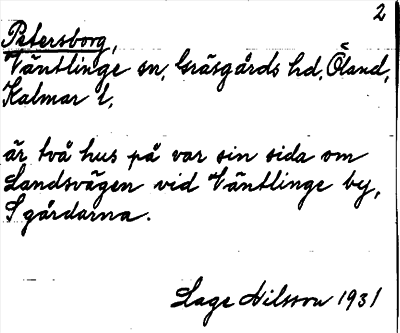 2
Petersborg,
Väntlinge sn, Gräsgårds hd, Öland,
Kalmar l,
är två hus på var sin sida om
Landsvägen vid Väntlinge by,
S gårdarna.
Lage Nilsson 1931